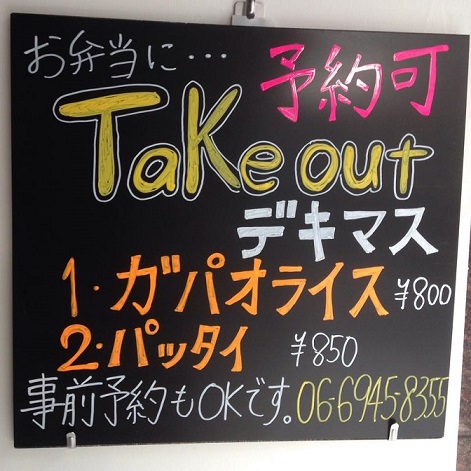 お弁当に… 予約可
TaKe out
デキマス
1.ガパオライス ¥800
2.パッタイ ¥850
事前予約もOKです。06-6945-8355